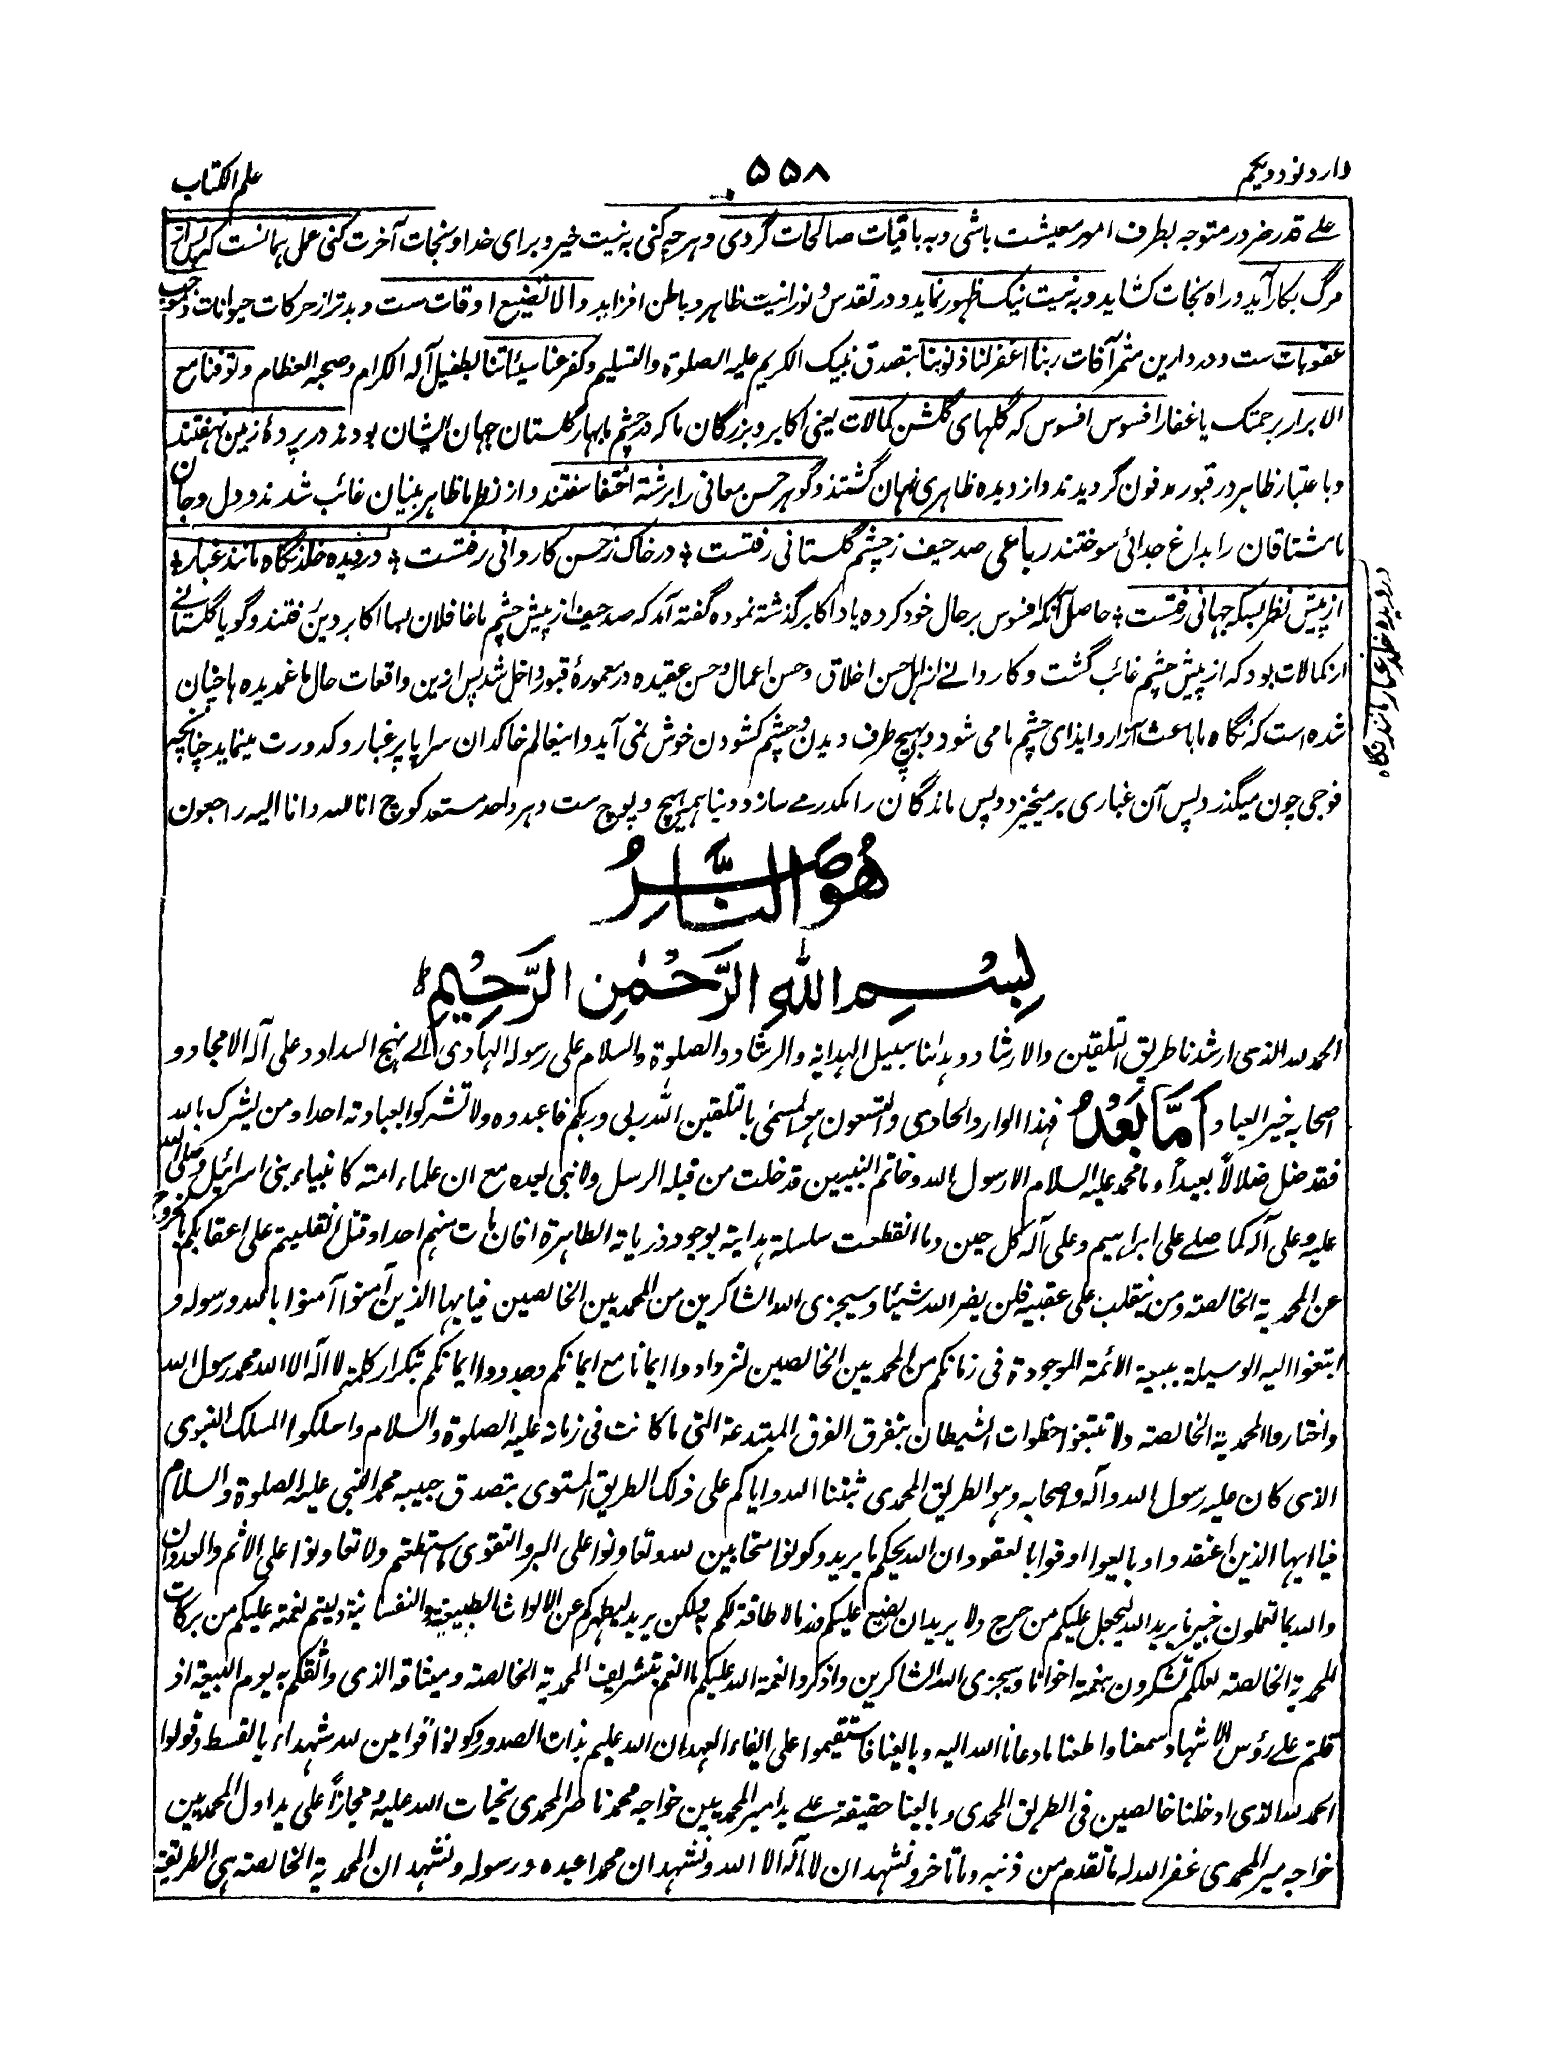 وارد نود و یکم
۵۵۸
علم الکتاب
علے قدر ضرور متوجه بطرف امور معیشت باشی و به باقیات صالحات گردی و هر چه کنی به نیت خیر و برای خدا و نجات آخرت کنی عمل همانست که پس از
مرگ بکار آید و راه نجات کشاید و به نیت نیک ظهور نماید و در تقدس و نورانیت ظاهر و باطن افزاید و الا تضییع اوقات ست و بدتر از حرکات حیوانات و موجب
عقوبات ست و در دارین مثمر آفات ربنا اغفر لنا ذنوبنا بتصدق نبیک الکریم علیه الصلوة والتسلیم و کفر عنا سیئاتنا بطفیل آله الکرام و صحبه العظام و توفنا مع
الابرار برحمتک یا غفار افسوس افسوس که گلهای گلشن کمالات یعنی اکابر و بزرگان ما که در چشم ما بهار گلستان جهان ایشان بودند در پردۀ زمین نهفتند
و باعتبار ظاهر در قبور مدفون گردیدند و از دیده ظاهری نهان گشتند و گوهر حسن معانی را برشتۀ اختفا سفتند و از نظر ما ظاهر بینان غائب شدند و دل و جان
ما مشتاقان را بداغ جدائی سوختند رباعی صد حیف ز چشم گلستانی رفتست ؛ در خاک ز حسن کاروانی رفتست ؛ در دیده خلد نگاه مانند غبار ؛
از پیش نظر بسکه جهانی رفتست ؛ حاصل آنکه افسوس بر حال خود کرده یاد اکابر گذشته نموده گفته آمد که صد حیف از پیش چشم ما غافلان بسا اکابر دین رفتند و گویا گلستانے
از کمالات بود که از پیش چشم غائب گشت و کاروانے از اهل حسن اخلاق و حسن اعمال و حسن عقیده در معمورۀ قبور داخل شد پس ازین واقعات حال ما غمدیده ها چنان
شده است که نگاه ما باعث آزار و ایذای چشم ما می شود و بهیچ طرف دیدن و چشم کشودن خوش نمی آید و اینعالم خاکدان سراپا پر غبار و کدورت مینماید چنانچه
فوجی چون میگذرد پس آن غباری برمیخیزد و پس ماندگان را مکدر مے سازد و دنیا همه هیچ و پوچ ست و هر واحد مستعد کوچ انا لله وانا الیه راجعون
هُوَ النَّاصِرُ
بِسْمِ اللهِ الرَّحْمٰنِ الرَّحِیْمِ
الحمد لله الذی ارشدنا طریق التلقین والارشاد و هدانا سبیل الهدایة والرشاد والصلوة والسلام علی رسوله الهادی الے نهج السداد و علی آله الامجاد و
اصحابه خیر العباد أَمَّا بَعْدُ فهذا الوارد الحادی والتسعون هو المسمی بالتلقین الله ربی و ربکم فاعبدوه ولا تشرکوا بعبادته احدا و من یشرک بالله
فقد ضل ضلالاً بعیداً و ما محمد علیه السلام الا رسول الله و خاتم النبیین قد خلت من قبله الرسل ولا نبی بعده مع ان علماء امته کانبیاء بنی اسرائیل و صلی الله
علیه و علی آله کما صلے علی ابراهیم و علی آله کل حین و ما انقطعت سلسلة هدایته بوجود ذریاته الطاهرة افان مات منهم احد او قتل انقلبتم علی اعقابکم بالخروج
عن المحمدیة الخالصة و من ینقلب علی عقبیه فلن یضر الله شیئا و سیجزی الله الشاکرین من المحمدیین الخالصین فیا یها الذین آمنوا آمنوا بالله و رسوله و
ابتغوا الیه الوسیلة ببیعة الائمة الموجودة فی زمانکم من المحمدیین الخالصین لتزدادوا ایمانا مع ایمانکم و جددوا ایمانکم بتکرار کلمة لا اله الا الله محمد رسول الله
واختاروا المحمدیة الخالصة ولا تتبعوا خطوات الشیطان بتفرق الفرق المبتدعة التی ما کانت فی زمانه علیه الصلوة والسلام واسلکوا المسلک النبوی
الذی کان علیه رسول الله و آله و اصحابه و هو الطریق المحمدی ثبتنا الله وایاکم علی ذلک الطریق المستوی بتصدق حبیبه محمد النبی علیه الصلوة والسلام
فیا ایها الذین اعتقدوا و بایعوا اوفوا بالعقود ان الله یحکم ما یرید و کونوا متحابین لله و تعاونوا علی البر والتقوی ما استطعتم ولا تعاونوا علی الاثم والعدوان
والله بما تعملون خبیر ما یرید الله لیجعل علیکم من حرج ولا یرید ان یضع علیکم ما لا طاقة لکم به ولکن یرید لیطهرکم عن الالواث الطبیعیة والنفسانیة و لیتم نعمته علیکم من برکات
المحمدیة الخالصة لعلکم تشکرون بنعمته اخوانا و سیجزی الله الشاکرین واذکروا نعمة الله علیکم ما انعم بتشریف المحمدیة الخالصة و میثاقه الذی واثقکم به یوم البیعة اذ
قلتم علے رؤس الاشهاد سمعنا واطعنا ما دعانا الله الیه و بایعنا فاستقیموا علی ایفاء العهد ان الله علیم بذات الصدور کونوا قوامین لله شهداء بالقسط و قولوا
الحمد لله الذی ادخلنا خالصین فی الطریق المحمدی و بایعنا حقیقة علے ید امیر المحمدیین خواجه محمد ناصر المحمدی تحیات الله علیه و مجازاً علی ید اول المحمدیین
خواجه میر المحمدی غفر الله له ما تقدم من ذنبه و ما تاخر و نشهد ان لا اله الا الله و نشهد ان محمدا عبده و رسوله و نشهد ان المحمدیة الخالصة هی الطریقة